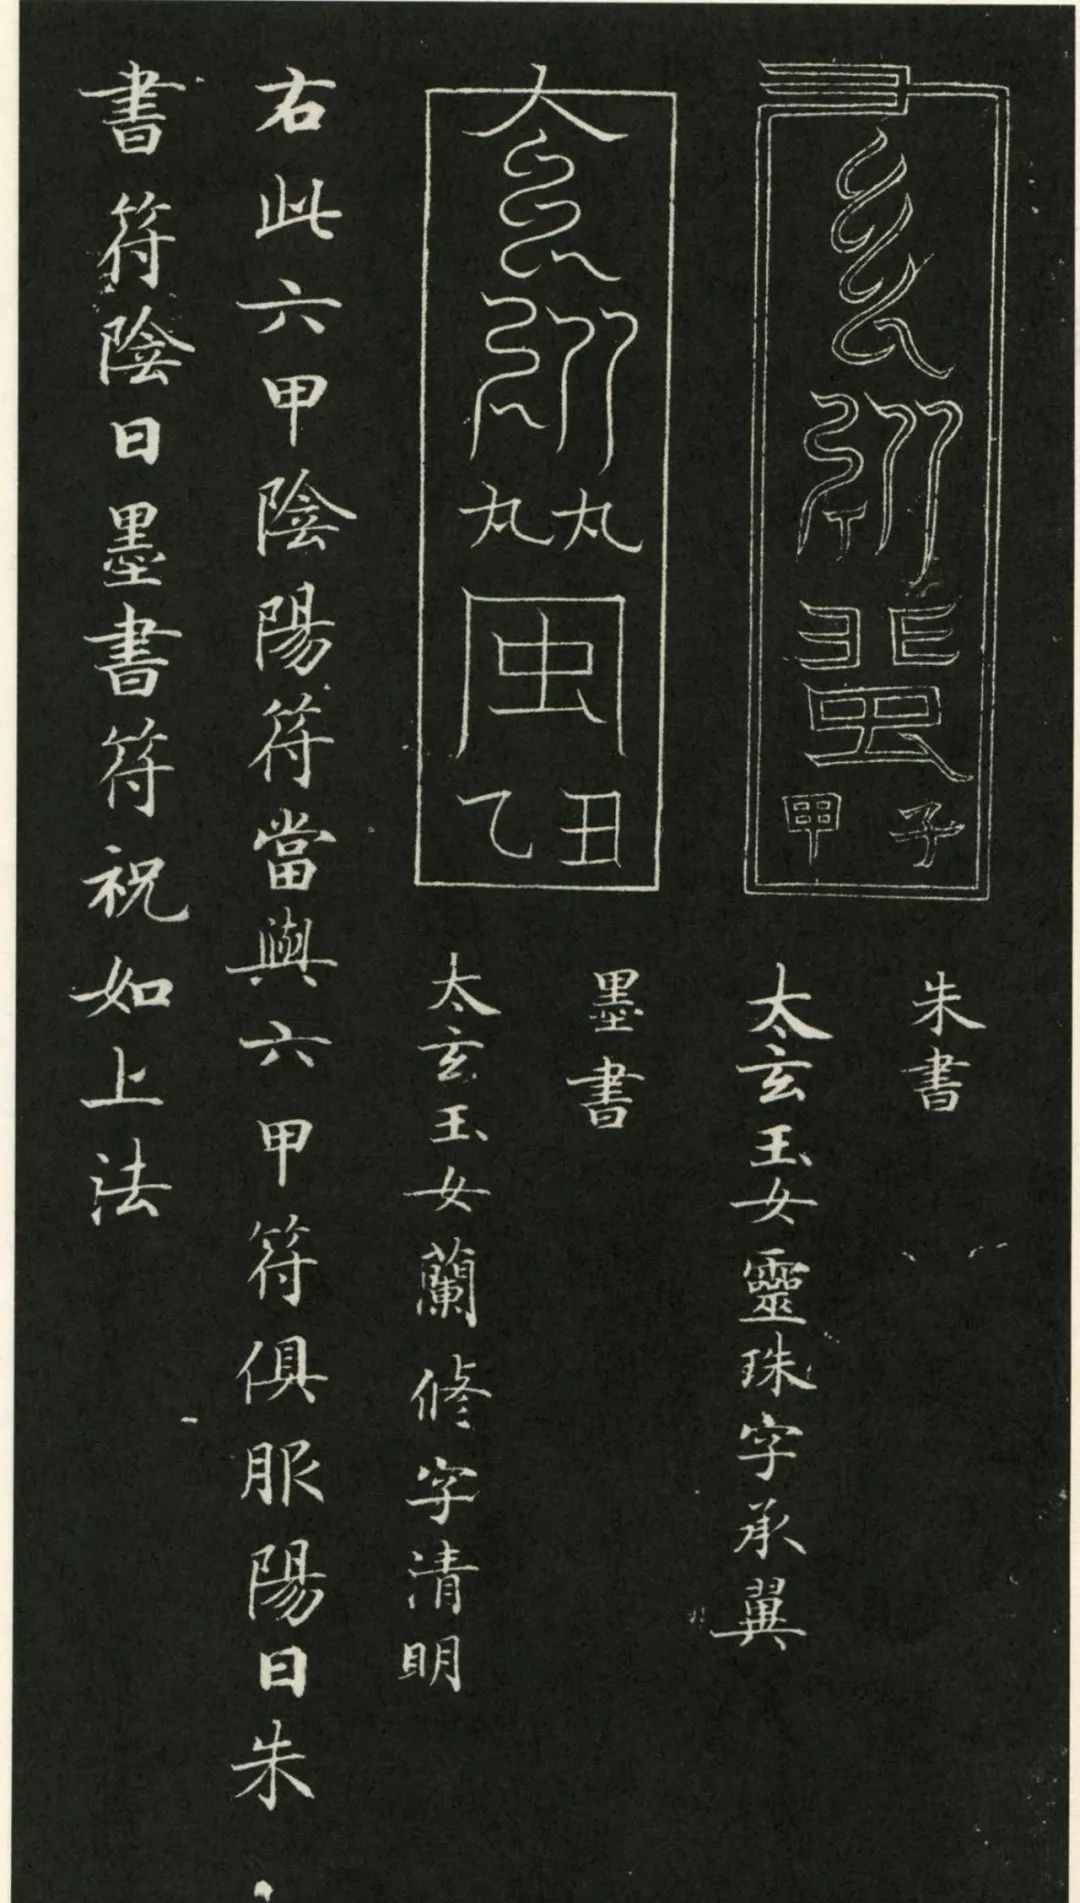 子
甲
朱書
太玄玉女靈珠字承翼
丑
乙
墨書
太玄玉女蘭修字清明
右此六甲陰陽符當與六甲符俱服陽日朱
書符陰日墨書符祝如上法